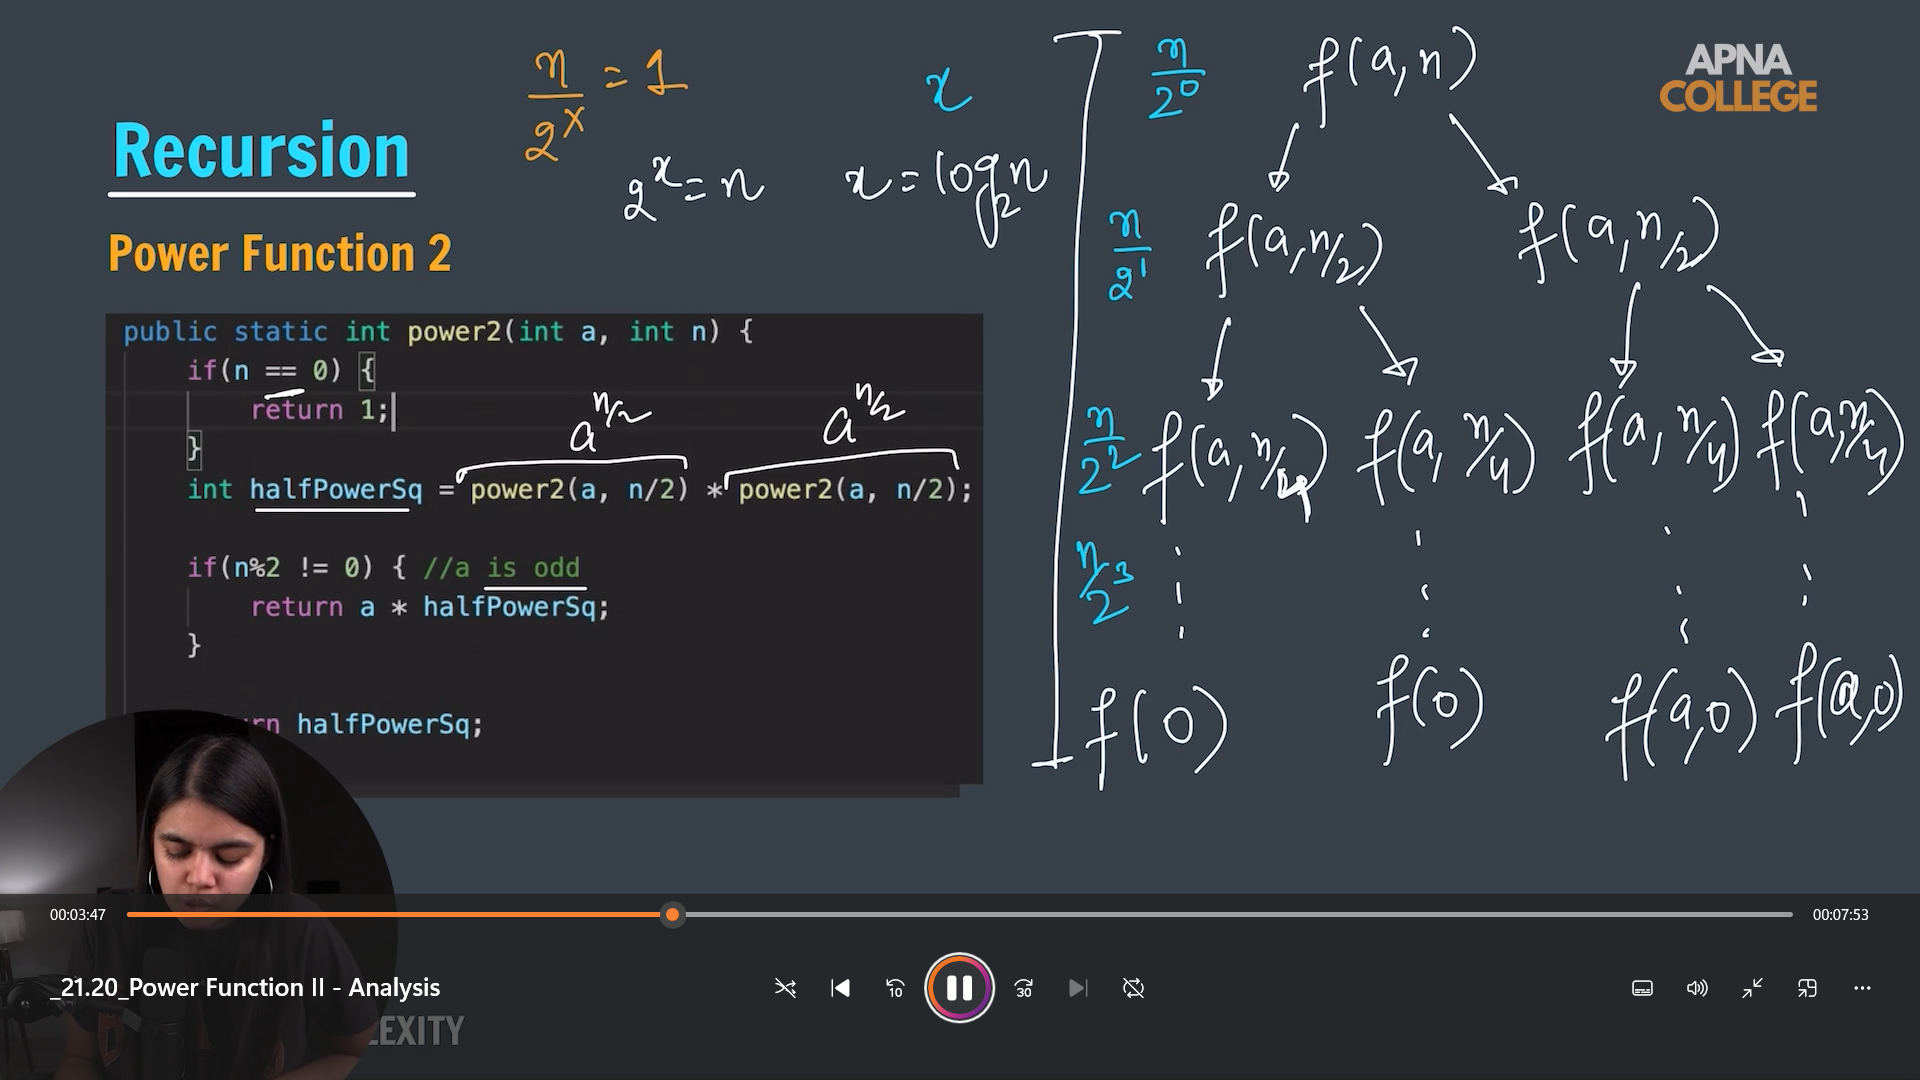 APNA
COLLEGE
Recursion
Power Function 2
n/2^x = 1
2^x = n
x
x = log₂n
public static int power2(int a, int n) {
if(n == 0) {
return 1;
}
a^n/2 a^n/2
int halfPowerSq = power2(a, n/2) * power2(a, n/2);
if(n%2 != 0) { //a is odd
return a * halfPowerSq;
}
halfPowerSq;
n/2^0 f(a, n)
n/2^1 f(a, n/2) f(a, n/2)
n/2^2 f(a, n/4) f(a, n/4) f(a, n/4) f(a, n/4)
n/2^3
f(0) f(0) f(a,0) f(a,0)
00:03:47 00:07:53
_21.20_Power Function II - Analysis
10 30